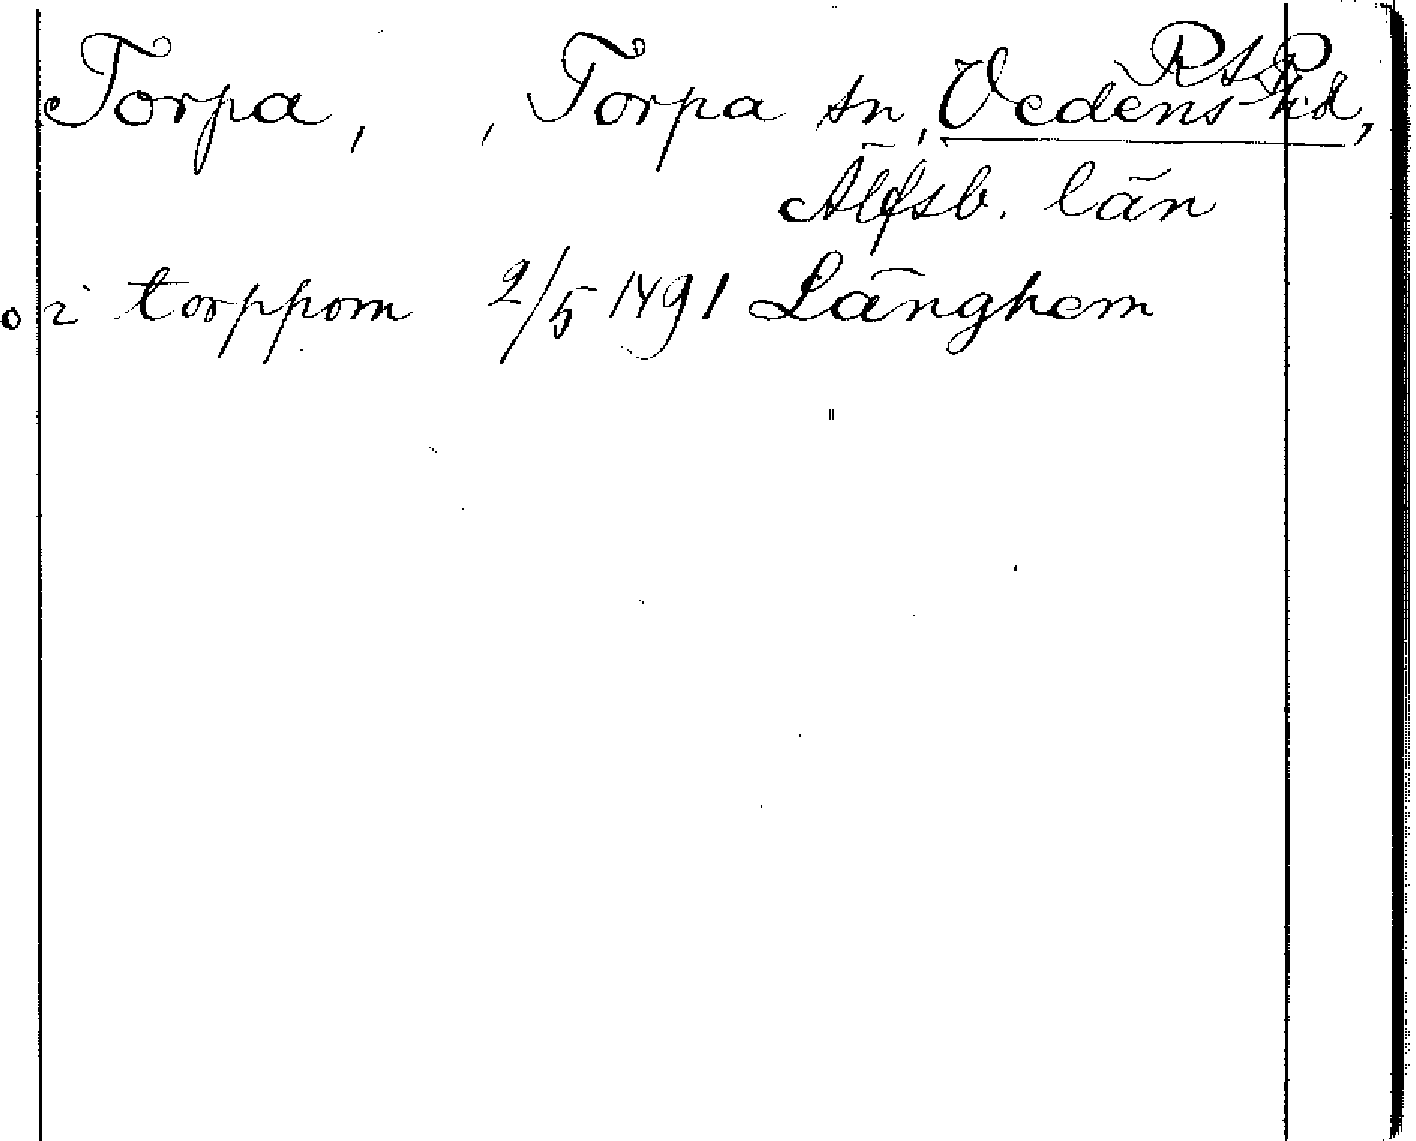 RAP
Torpa, , Torpa sn, Vedens hd,
Älfsb. län
o i torppom 2/5 1491 Länghem